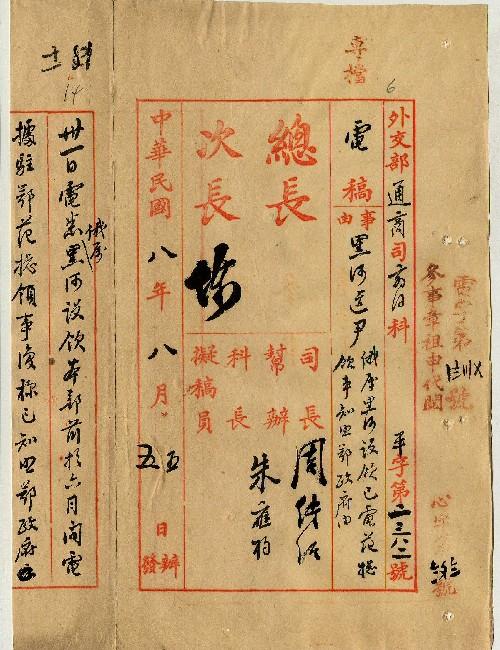 專檔
6
外交部通商司 科
平字第二三八二號
電稿
事由
黑河道尹
俄屬黑河設領已電范總
領事知照鄂政府由
總長
次長
司長
周傳經
幫辦
朱應杓
科長
擬稿員
中華民國八年八月
五日辦
五發
電字第 號
參事章祖申代閱
號
14
卅一日電悉俄屬黑河設領本部前於六月間電
據駐鄂范總領事復稱已知照鄂政府